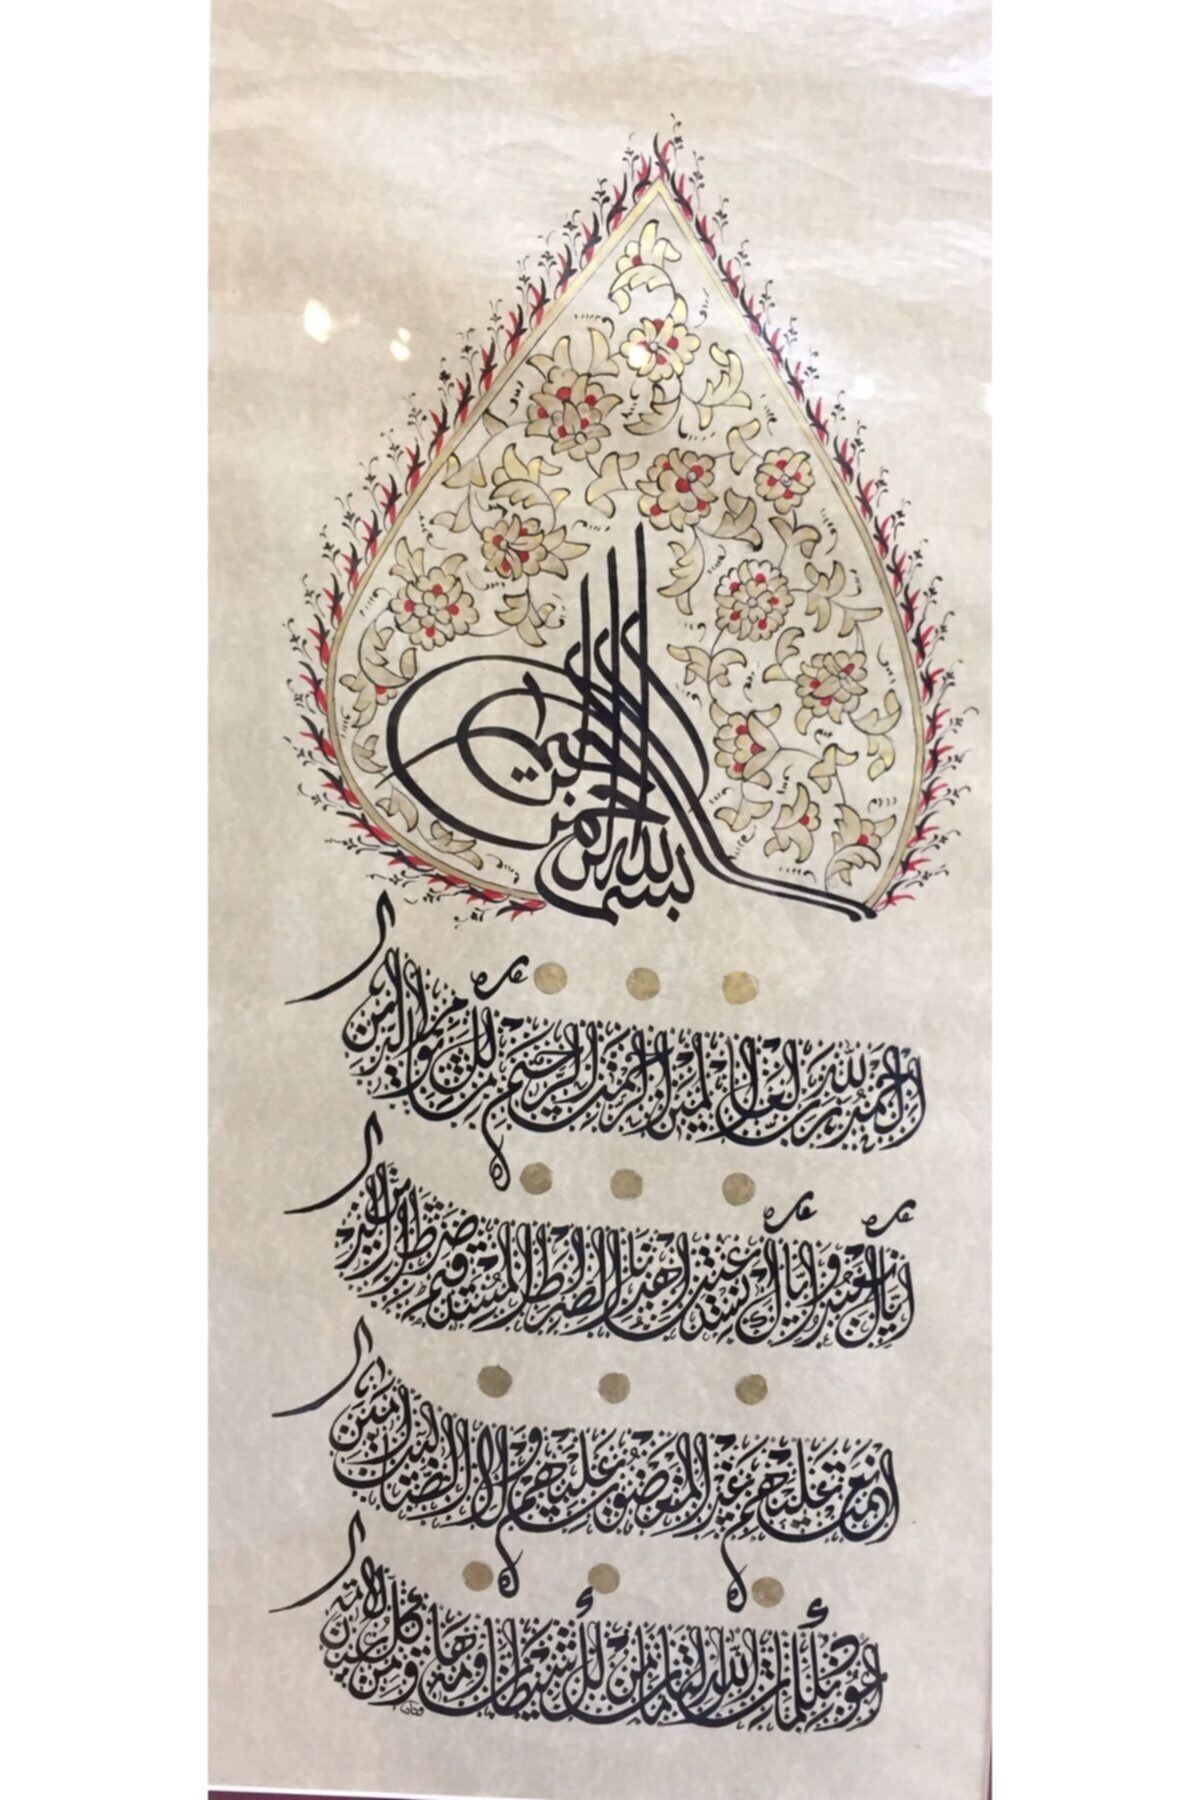 بسم الله الرحمن الرحيم
الحمد لله رب العالمين الرحمن الرحيم مالك يوم الدين
إياك نعبد وإياك نستعين اهدنا الصراط المستقيم صراط الذين
أنعمت عليهم غير المغضوب عليهم ولا الضالين آمين
أعوذ بكلمات الله التامات من كل شيطان وهامة ومن كل عين لامة